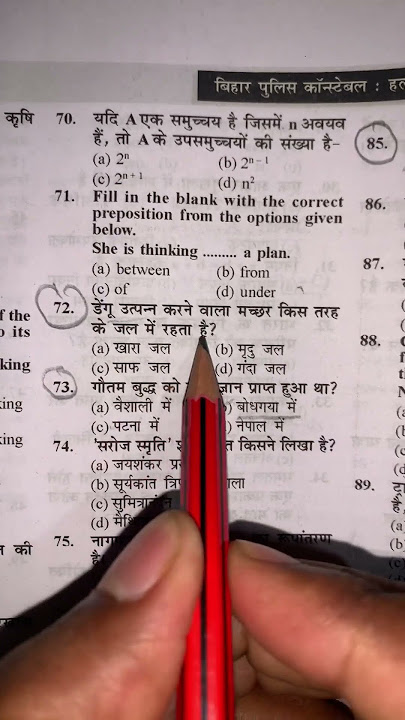 बिहार पुलिस कॉन्स्टेबल :
कृषि
70. यदि A एक समुच्चय है जिसमें n अवयव
हैं, तो A के उपसमुच्चयों की संख्या है–
(a) 2ⁿ (b) 2ⁿ⁻¹
(c) 2ⁿ⁺¹ (d) n²
71. Fill in the blank with the correct
preposition from the options given
below.
She is thinking ......... a plan.
(a) between (b) from
(c) of (d) under
72. डेंगू उत्पन्न करने वाला मच्छर किस तरह
के जल में रहता है?
(a) खारा जल (b) मृदु जल
(c) साफ जल (d) गंदा जल
73. गौतम बुद्ध को ज्ञान प्राप्त हुआ था?
(a) वैशाली में बोधगया में
(c) पटना में नेपाल में
74. 'सरोज स्मृति' किसने लिखा है?
(a) जयशंकर
(b) सूर्यकांत
(c)
(d)
75.
f the
its
king
ing
ing
की
85.
86.
87.
88.
89.
(a)
(b)
(c)